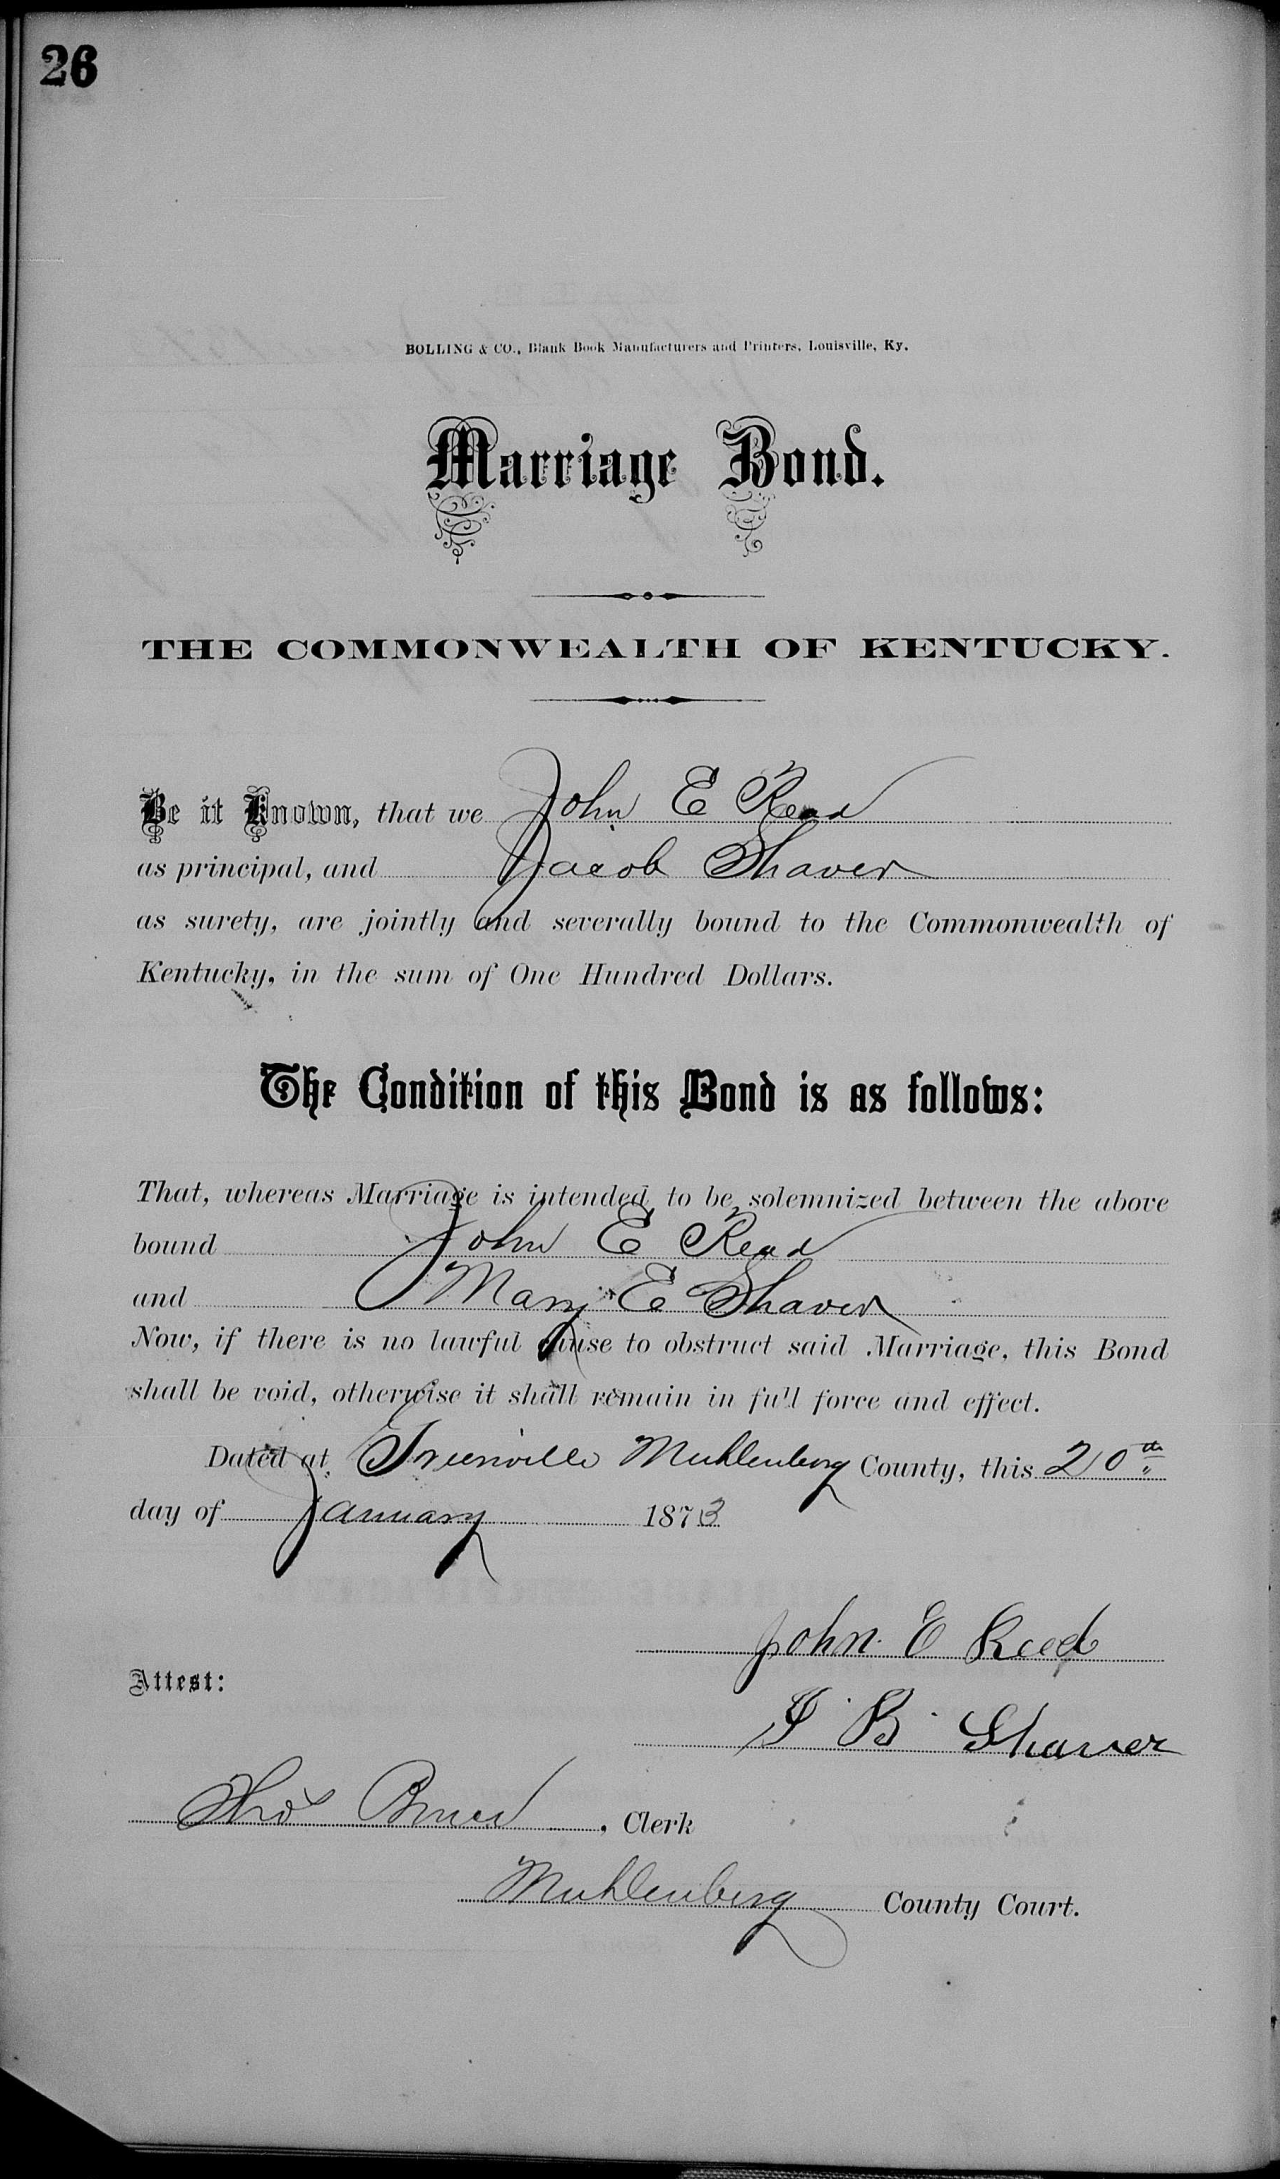 26
BOLLING & CO., Blank Book Manufacturers and Printers, Louisville, Ky.
Marriage Bond.
THE COMMONWEALTH OF KENTUCKY.
Be it Known, that we John E Read
as principal, and Jacob Shaver
as surety, are jointly and severally bound to the Commonwealth of
Kentucky, in the sum of One Hundred Dollars.
The Condition of this Bond is as follows:
That, whereas Marriage is intended to be solemnized between the above
bound John E Read
and Mary E Shaver
Now, if there is no lawful cause to obstruct said Marriage, this Bond
shall be void, otherwise it shall remain in full force and effect.
Dated at Greenville Muhlenberg County, this 20th
day of January 1873
John E Reed
Attest:
J B Shaver
Tho Bruce, Clerk
Muhlenberg County Court.